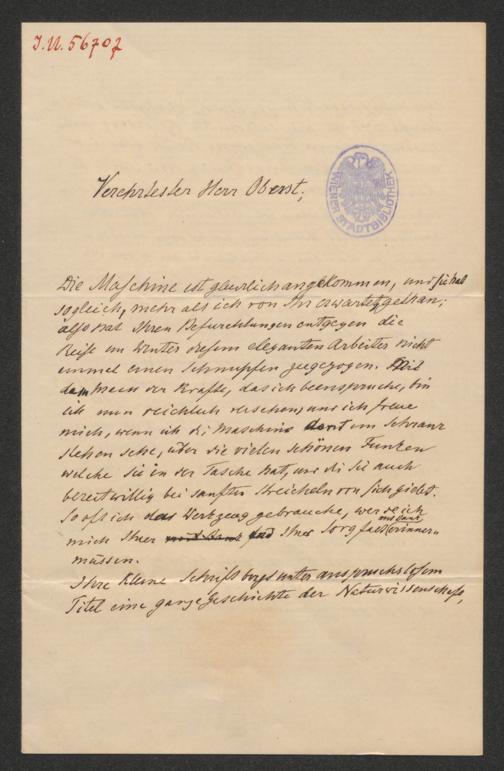 I.N. 56707
WIENER STADTBIBLIOTHEK
Verehrtester Herr Oberst,
Die Maschine ist glücklich angekommen, und sie hat
sogleich, mehr als ich von Ihr erwartet, gethan;
also hat Ihren Befürchtungen entgegen die
Reise im Winter diesem eleganten Arbeiter nicht
einmal einen Schnupfen zugezogen. Mit
dem der Kräfte, das ich beanspruche, bin
ich nun reichlich versehen, und ich freue
mich, wenn ich die Maschine dort im Schrank
stehen sehe, über die vielen schönen Funken
welche Sie in der Tasche hat, und die Sie auch
bereitwillig bei sanftem Streicheln von sich giebt.
So oft ich das Werkzeug gebrauche, werde ich
mich Ihrer und Ihrer Sorgfalt mit Dank erinnern
müssen.
Ihre kleine Schrift birgt unter anspruchslosem
Titel eine ganze Geschichte der Naturwissenschaft,